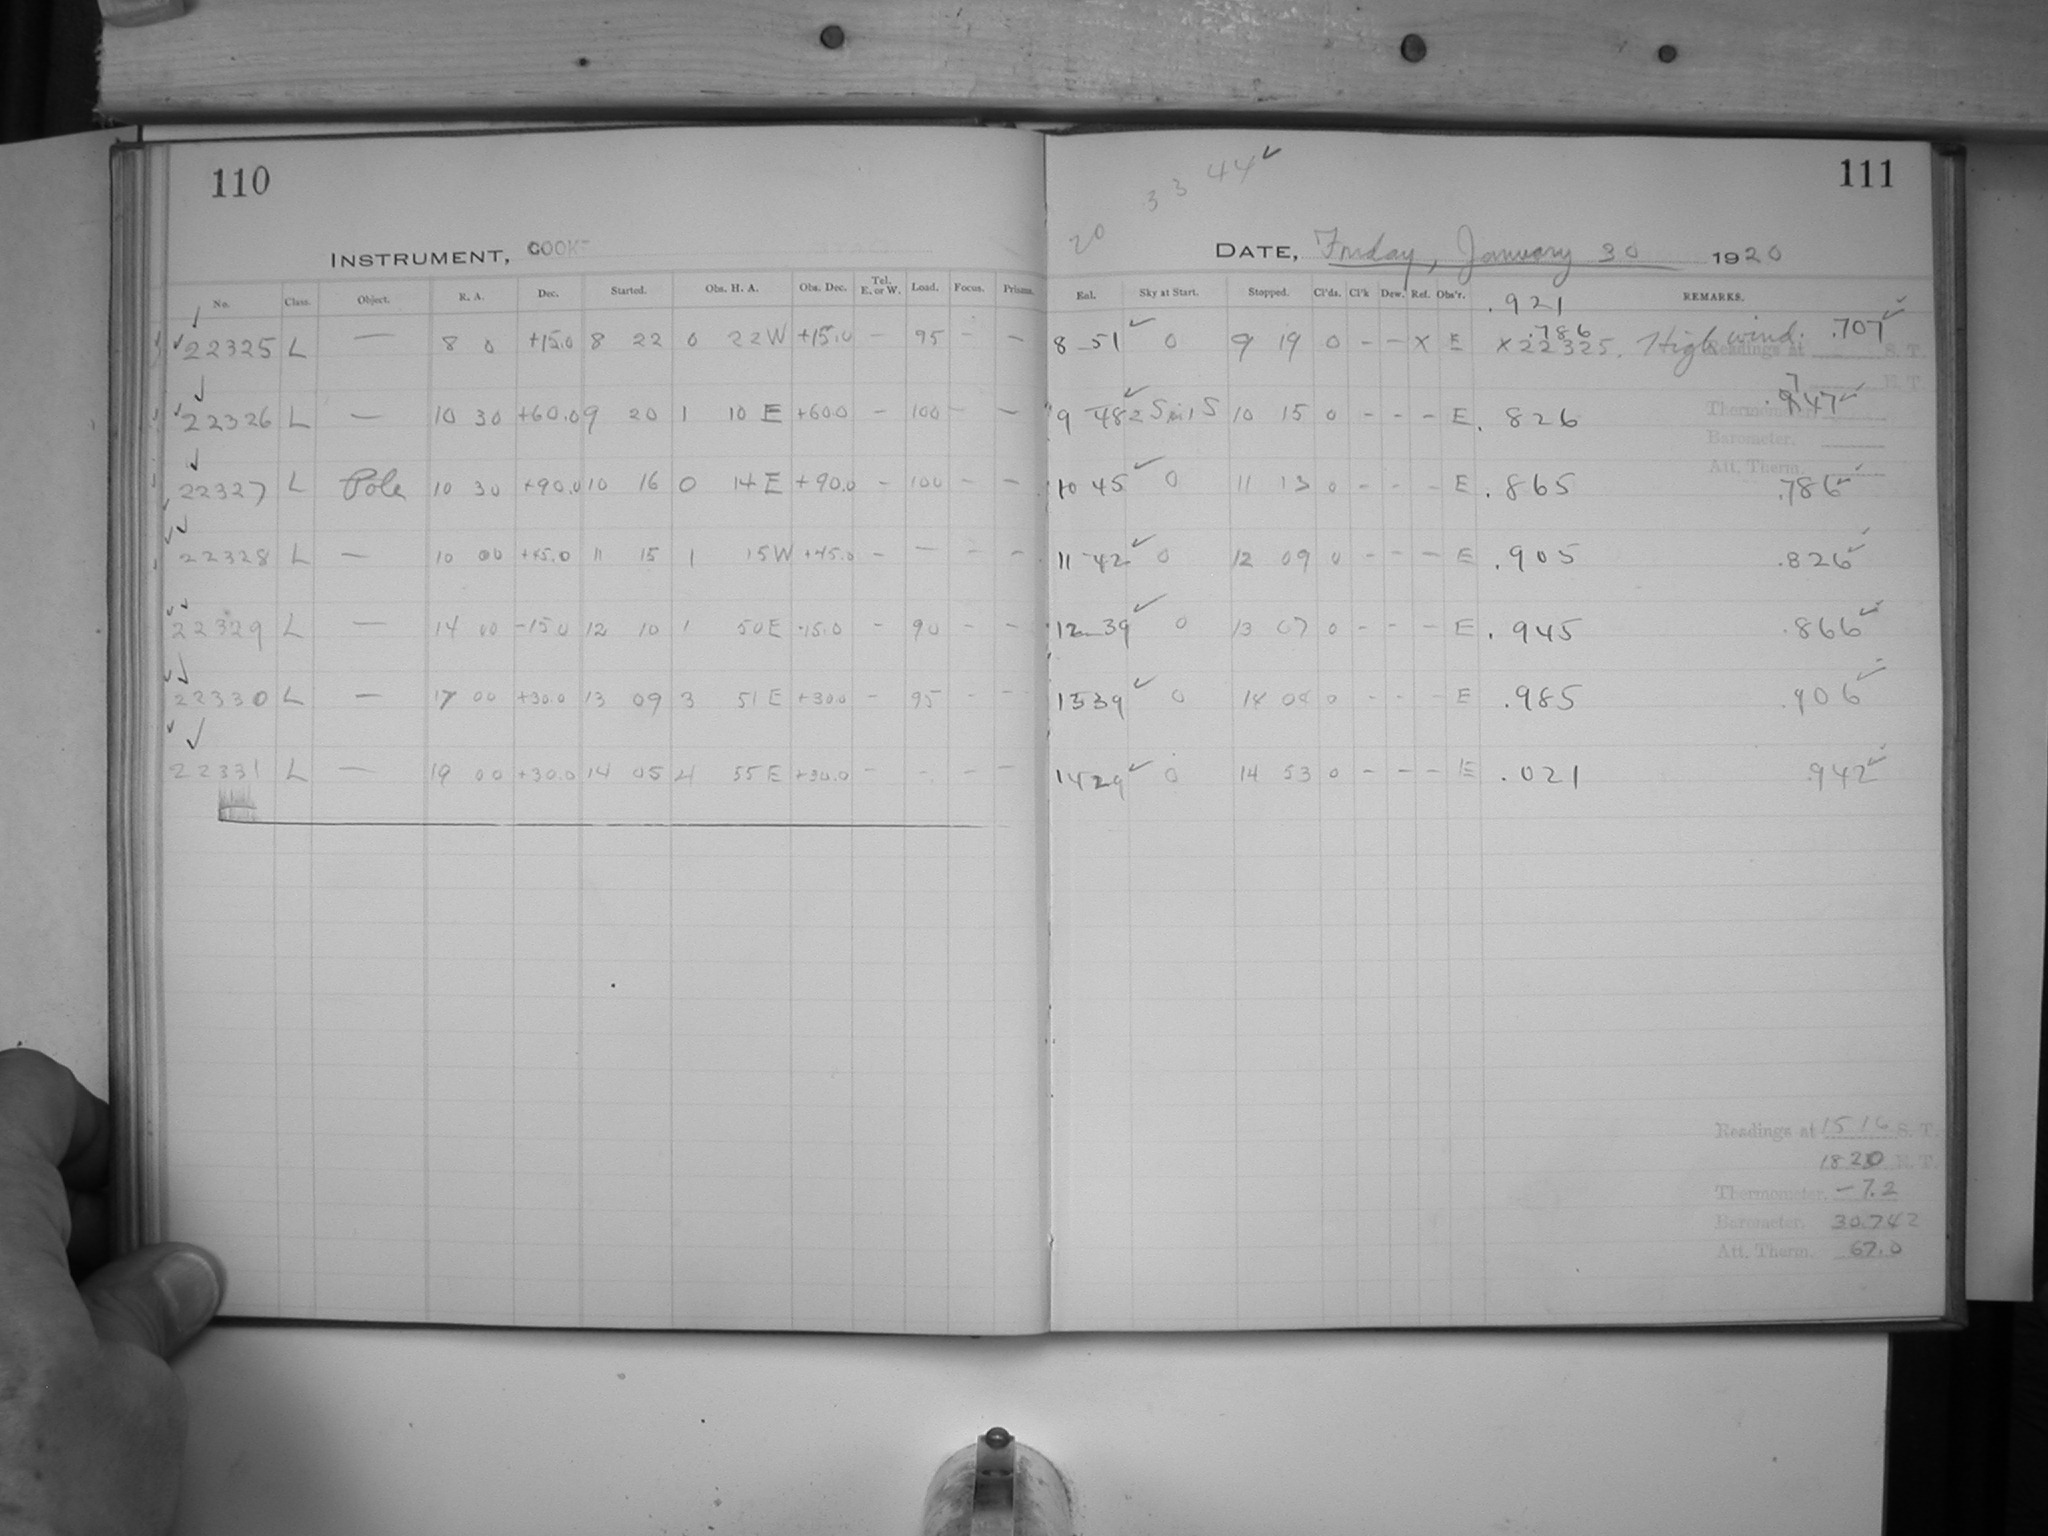 110
INSTRUMENT, COOKE
No. Class. Object. R. A. Dec. Started. Obs. H. A. Obs. Dec. Tel. E. or W. Load. Focus. Prisms.
22325 L — 8 0 +15.0 8 22 0 22 W +15.0 - 95 - -
22326 L — 10 30 +60.0 9 20 1 10 E +60.0 - 100 - -
22327 L Pole 10 30 +90.0 10 16 0 14 E +90.0 - 100 - -
22328 L — 10 00 +45.0 11 15 1 15 W +45.0 - — - -
22329 L — 14 00 -15.0 12 10 1 50 E -15.0 - 90 - -
22330 L — 17 00 +30.0 13 09 3 51 E +30.0 - 95 - -
22331 L — 19 00 +30.0 14 05 4 55 E +30.0 - - - -
111
20 3 3 44 ✓
DATE, Friday, January 30 1920
Sky at Start. Stopped. Cl'ds. Cl'k Dew. Ref. Obs'r. REMARKS.
.921
8 51 ✓ 0 9 19 0 - - X E .786 X 22325. High wind. .707 ✓
Readings at S. T.
9 48 ✓ 10 15 0 - - - E .826 47 ✓
Thermometer.
Barometer.
Att. Therm.
10 45 ✓ 0 11 13 0 - - - E .865 .786 ✓
11 42 ✓ 0 12 09 0 - - - E .905 .826 ✓
12 39 ✓ 0 13 07 0 - - - E .945 .866 ✓
13 39 ✓ 0 14 04 0 - - - E .985 .906 ✓
14 29 ✓ 0 14 53 0 - - - E .021 .942 ✓
Readings at 15 16 S. T.
1820 E. T.
Thermometer. -7.2
Barometer. 30.742
Att. Therm. 67.0